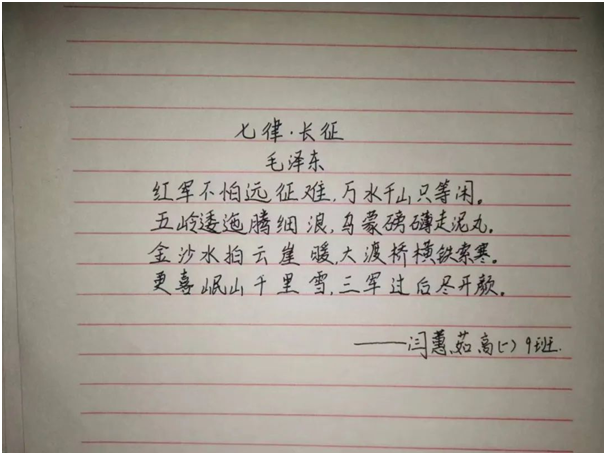 七律·长征
毛泽东
红军不怕远征难，万水千山只等闲。
五岭逶迤腾细浪，乌蒙磅礴走泥丸。
金沙水拍云崖暖，大渡桥横铁索寒。
更喜岷山千里雪，三军过后尽开颜。
——闫蕙茹高(一)9班.